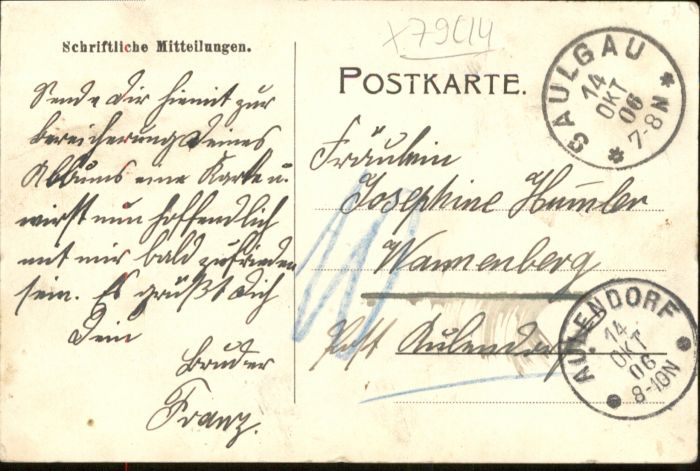 x79C14
Schriftliche Mitteilungen.
POSTKARTE.
SAULGAU
14
OKT
06
7-8N
Sende Dir hiemit zur
Bereicherung Deines
Albums eine Karte u.
wirst nun hoffendlich
mit mir bald zufrieden
sein. Es grüßt Dich
Dein
Bruder
Franz.
Fräulein
Josephine
Wannenberg
Post Aulendorf
AULENDORF
14
OKT
06
8-10N